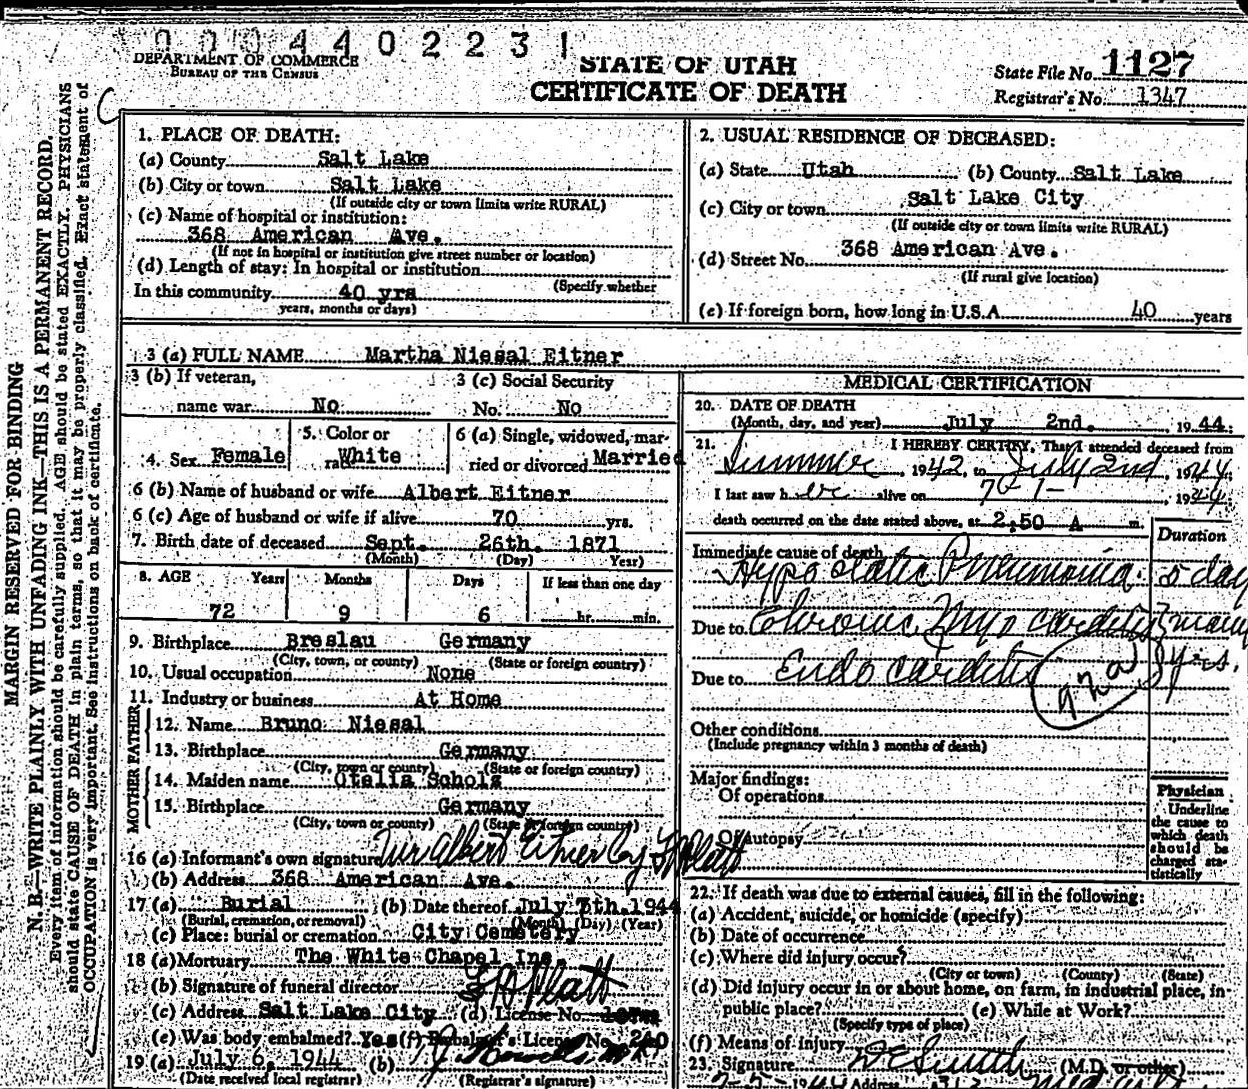 0 0 0 4 4 0 2 2 3 1
DEPARTMENT OF COMMERCE
BUREAU OF THE CENSUS
STATE OF UTAH
CERTIFICATE OF DEATH
State File No. 1127
Registrar's No. 1347
MARGIN RESERVED FOR BINDING
N. B.—WRITE PLAINLY WITH UNFADING INK—THIS IS A PERMANENT RECORD.
Every item of information should be carefully supplied. AGE should be stated EXACTLY. PHYSICIANS
should state CAUSE OF DEATH in plain terms, so that it may be properly classified. Exact statement of
OCCUPATION is very important. See instructions on back of certificate.
1. PLACE OF DEATH:
(a) County Salt Lake
(b) City or town Salt Lake
(If outside city or town limits write RURAL)
(c) Name of hospital or institution:
368 American Ave.
(If not in hospital or institution give street number or location)
(d) Length of stay: In hospital or institution
(Specify whether
In this community 40 yrs
years, months or days)
2. USUAL RESIDENCE OF DECEASED:
(a) State Utah (b) County Salt Lake
(c) City or town Salt Lake City
(If outside city or town limits write RURAL)
(d) Street No. 368 American Ave.
(If rural give location)
(e) If foreign born, how long in U.S.A. 40 years
3 (a) FULL NAME Martha Niesal Eitner
3 (b) If veteran,
name war No
3 (c) Social Security
No. No
4. Sex Female
5. Color or
race White
6 (a) Single, widowed, mar-
ried or divorced Married
6 (b) Name of husband or wife Albert Eitner
6 (c) Age of husband or wife if alive 70 yrs.
7. Birth date of deceased Sept. 26th. 1871
(Month) (Day) Year)
8. AGE Years Months Days If less than one day
72 9 6 hr. min.
9. Birthplace Breslau Germany
(City, town, or county) (State or foreign country)
10. Usual occupation None
11. Industry or business At Home
FATHER
12. Name Bruno Niesal
13. Birthplace Germany
(City, town or county) (State or foreign country)
MOTHER
14. Maiden name Otelia Scholz
15. Birthplace Germany
(City, town or county) (State or foreign country)
16 (a) Informant's own signature Mr Albert Eitner By Platt
(b) Address 368 American Ave.
17 (a) Burial (b) Date thereof July 7th. 1944
(Burial, cremation, or removal) (Month) (Day) (Year)
(c) Place: burial or cremation City Cemetery
18 (a) Mortuary The White Chapel Inc.
(b) Signature of funeral director Platt
(c) Address Salt Lake City (d) License No.
(e) Was body embalmed? Yes (f) Embalmer's License No.
19 (a) July 6, 1944 (b)
(Date received local registrar) (Registrar's signature)
MEDICAL CERTIFICATION
20. DATE OF DEATH
(Month, day, and year) July 2nd. 1944.
21. I HEREBY CERTIFY, That I attended deceased from
Summer, 1942, to July 2nd, 1944
I last saw her alive on 7-1-, 1944
death occurred on the date stated above, at 2:50 A m.
Duration
Immediate cause of death
Hypostatic Pneumonia 5 day
Due to Chronic Myocarditis many
Due to Endocarditis yrs.
92a
Other conditions
(Include pregnancy within 3 months of death)
Major findings:
Of operations
Of autopsy
Physician
Underline
the cause to
which death
should be
charged sta-
tistically
22. If death was due to external causes, fill in the following:
(a) Accident, suicide, or homicide (specify)
(b) Date of occurrence
(c) Where did injury occur?
(City or town) (County) (State)
(d) Did injury occur in or about home, on farm, in industrial place, in
public place? (e) While at Work?
(Specify type of place)
(f) Means of injury
23. Signature Smith (M.D. or other)
1944 Address